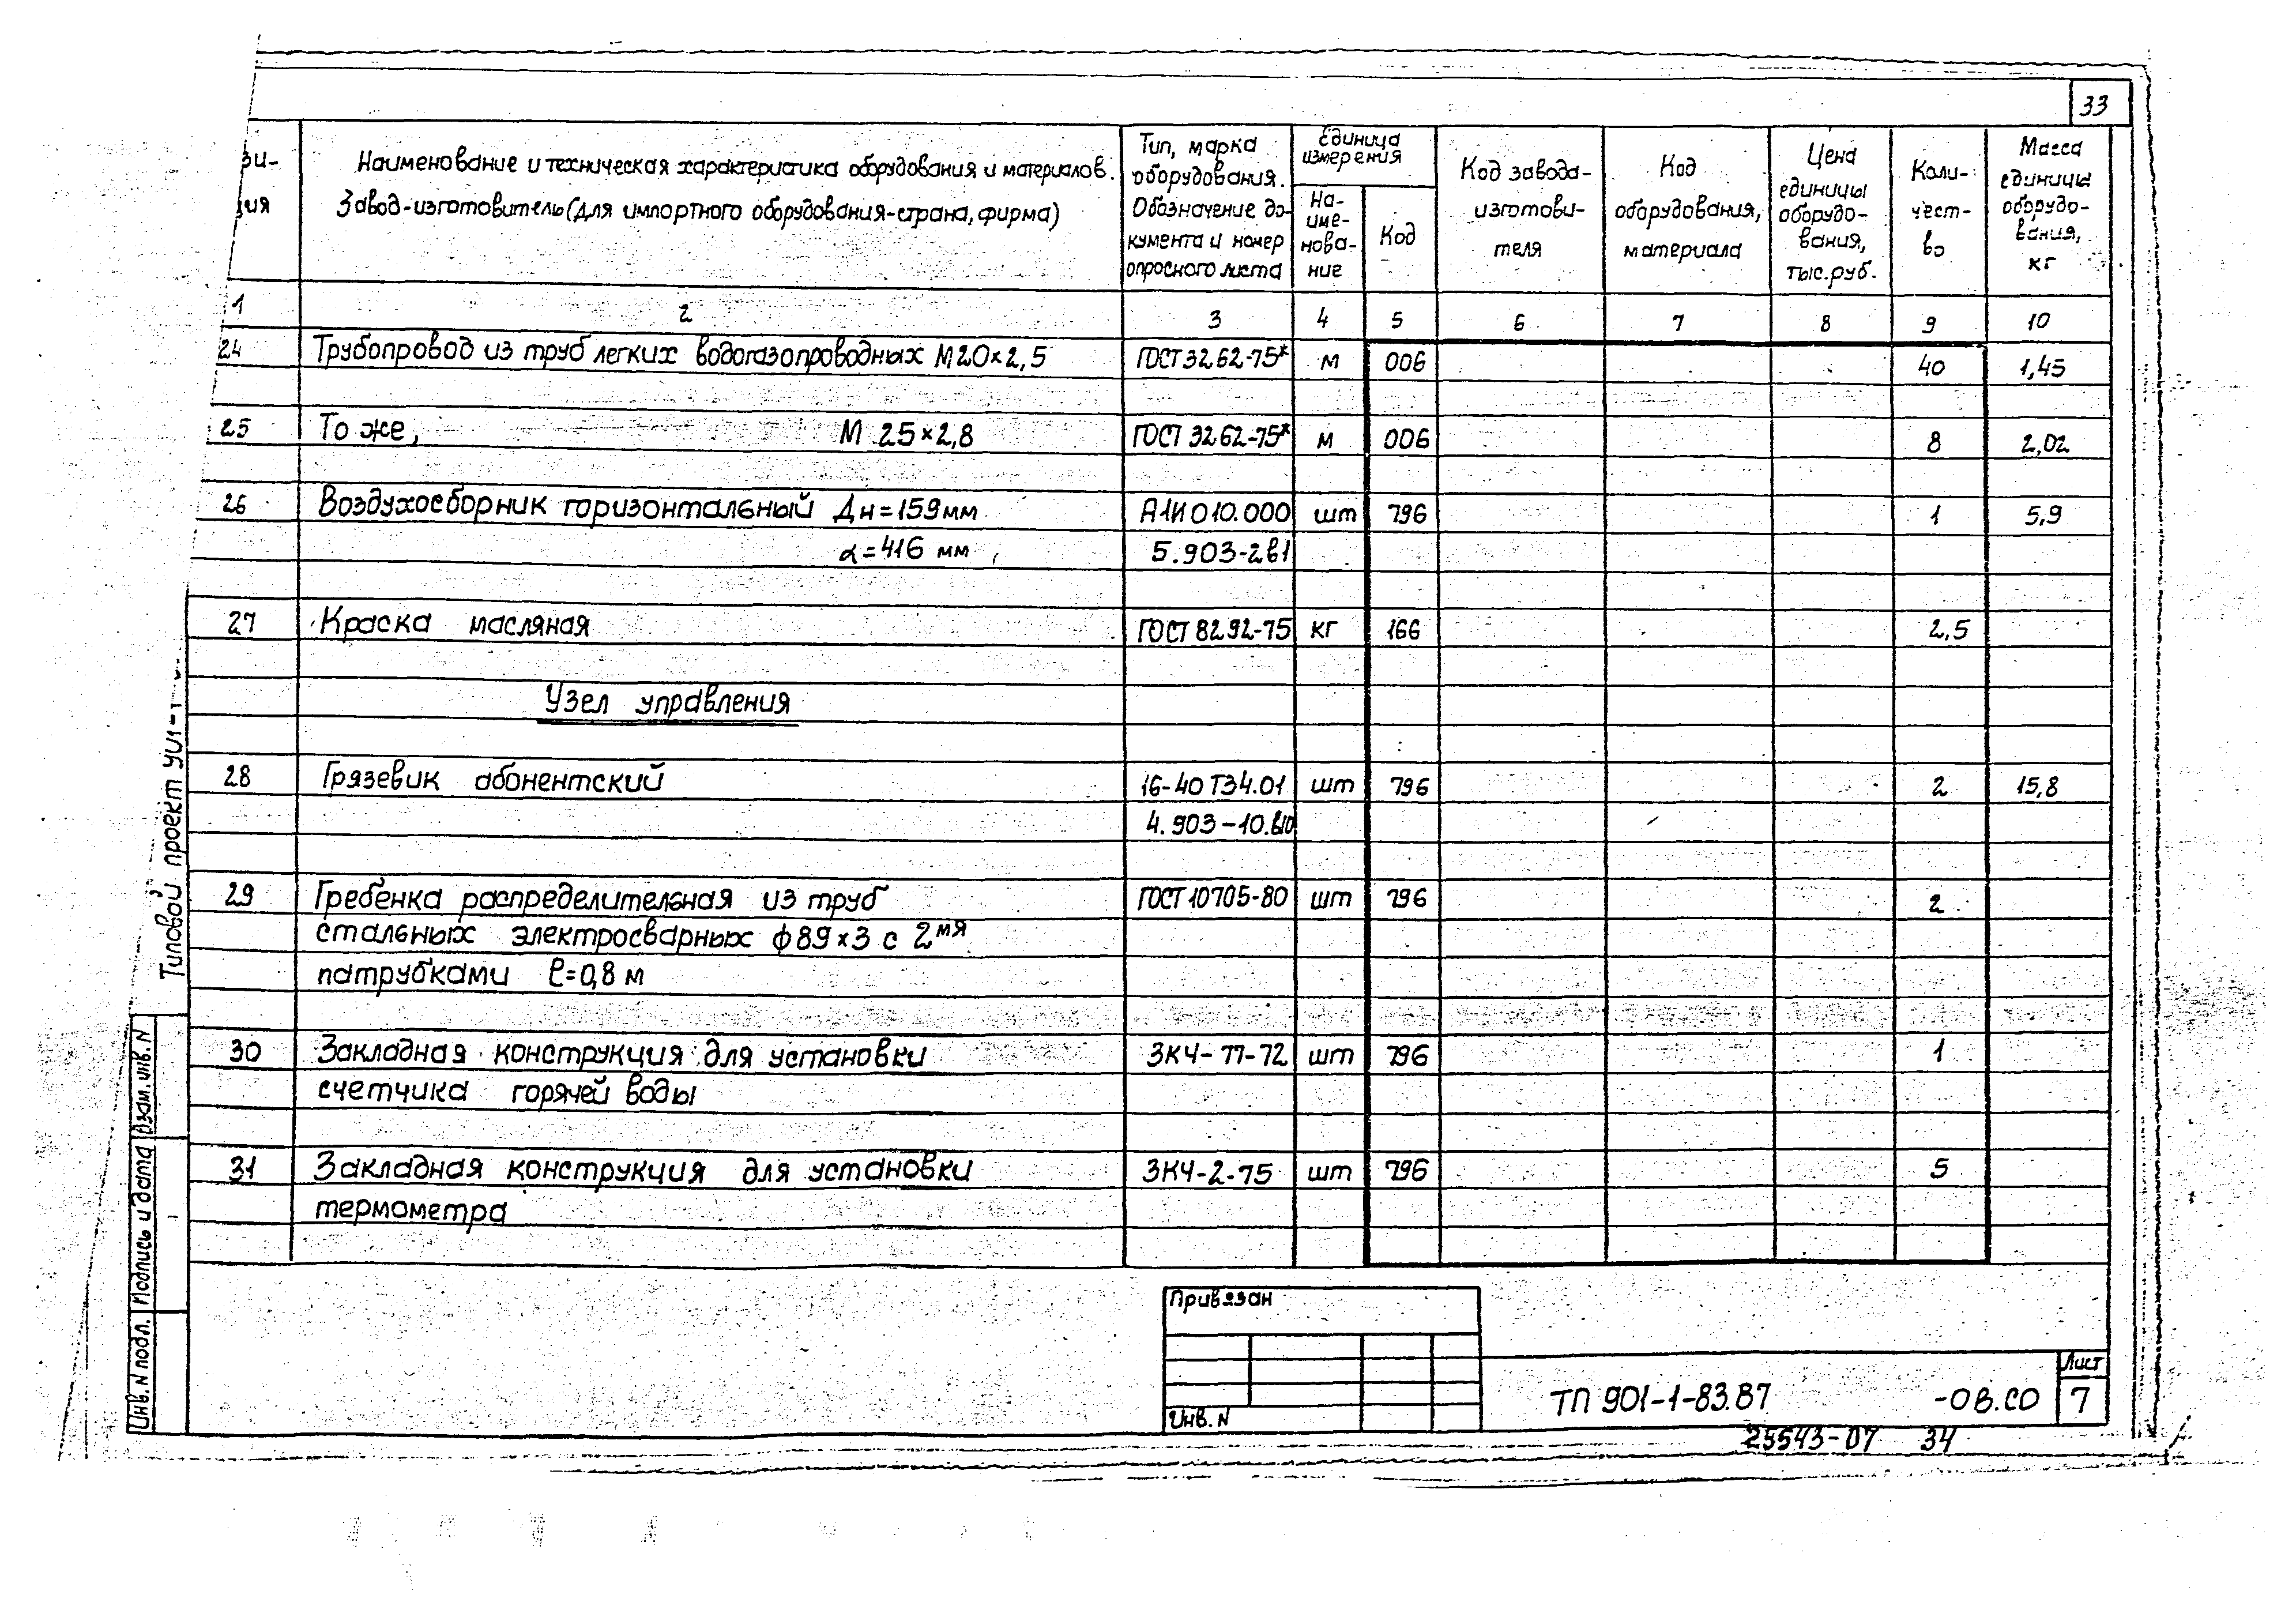 33
зи-
ия
Наименование и техническая характеристика оборудования и материалов.
Завод-изготовитель (для импортного оборудования-страна, фирма)
Тип, марка
оборудования.
Обозначение до-
кумента и номер
опросного листа
Единица
измерения
На-
име-
нова-
ние
Код
Код завода-
изготови-
теля
Код
оборудования,
материала
Цена
единицы
оборудо-
вания,
тыс.руб.
Коли-
чест-
во
Масса
единицы
оборудо-
вания,
кг
1 2 3 4 5 6 7 8 9 10
24 Трубопровод из труб легких водогазопроводных М20×2,5 ГОСТ 3262-75* м 006 40 1,45
25 То же, М 25×2,8 ГОСТ 3262-75* м 006 8 2,02
26 Воздухосборник горизонтальный Дн=159мм А1И 010.000 шт 796 1 5,9
α=416 мм 5.903-2в1
27 Краска масляная ГОСТ 8292-75 кг 166 2,5
Узел управления
28 Грязевик абонентский 16-40 Т34.01 шт 796 2 15,8
4.903-10.в10
29 Гребенка распределительная из труб ГОСТ 10705-80 шт 796 2
стальных электросварных ф89×3 с 2мя
патрубками ℓ=0,8 м
30 Закладная конструкция для установки ЗК4-77-72 шт 796 1
счетчика горячей воды
31 Закладная конструкция для установки ЗК4-2-75 шт 796 5
термометра
Типовой проект
Взам. инв. N
Подпись и дата
Инв. N подл.
Привязан
Инв. N
ТП 901-1-83.87 -ОВ.СО
Лист
7
25543-07 34